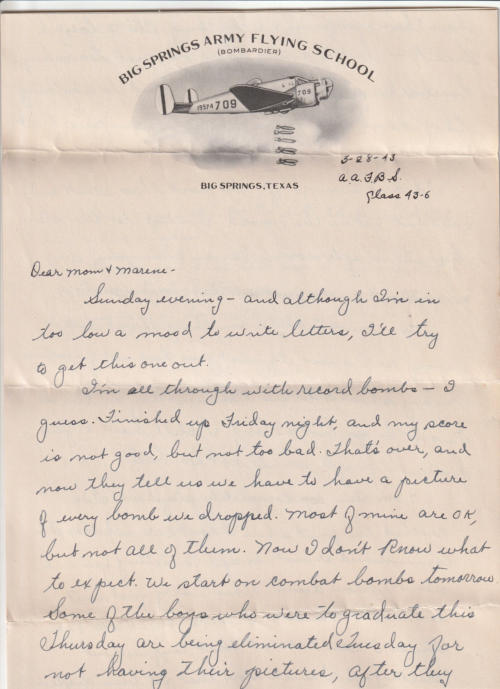 BIG SPRINGS ARMY FLYING SCHOOL
(BOMBARDIER)
709
709
BIG SPRINGS, TEXAS
3-28-43
A.A.F.B.S.
Class 43-6
Dear Mom & Marene-
Sunday evening - and although I'm in
too low a mood to write letters, I'll try
to get this one out.
I'm all through with record bombs - I
guess. Finished up Friday night, and my score
is not good, but not too bad. That's over, and
now they tell us we have to have a picture
of every bomb we dropped. Most of mine are OK,
but not all of them. Now I don't know what
to expect. We start on combat bombs tomorrow
Some of the boys who were to graduate this
Thursday are being eliminated Tuesday for
not having their pictures, after they